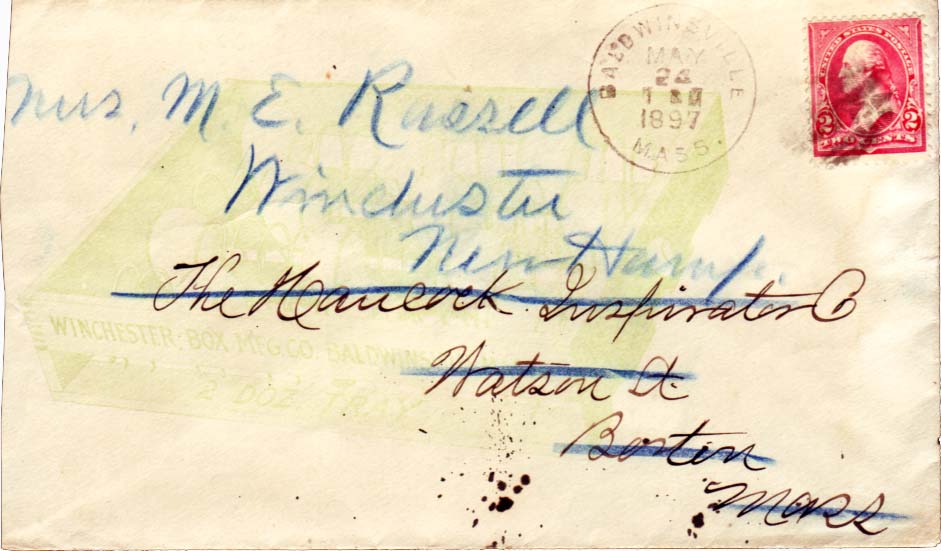 BALDWINSVILLE
MAY
24
1897
MASS.
UNITED STATES POSTAGE
2 2
TWO CENTS
Mrs. M. E. Russell
Winchester
New Hamp.
The Hancock Inspirator Co
WINCHESTER BOX M'F'G. CO. BALDWINS
Watson St.
2 DOZ TRAY
Boston
Mass